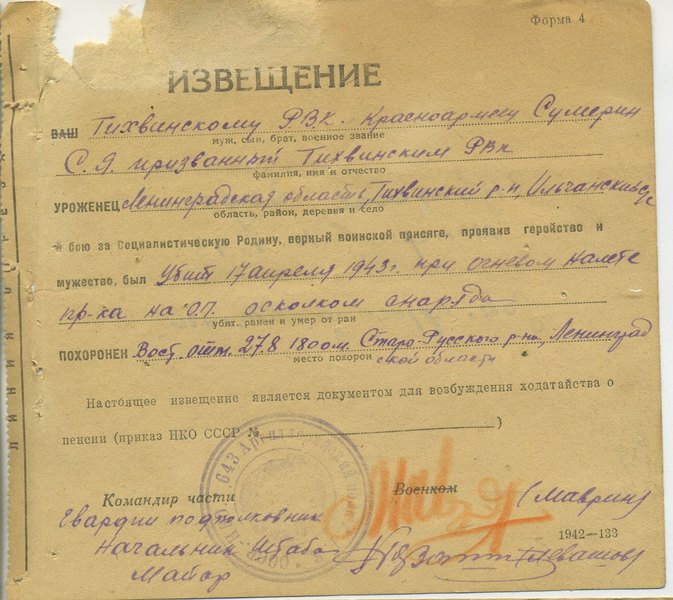 Форма 4
ИЗВЕЩЕНИЕ
ВАШ Тихвинскому РВК. Красноармеец Сумерин
муж, сын, брат, военное звание
С. Я. призванный Тихвинским РВК
фамилия, имя и отчество
УРОЖЕНЕЦ Ленинградская область, Тихвинский р-н,
область, район, деревня и село
в бою за Социалистическую Родину, верный воинской присяге, проявив геройство и
мужество, был Убит 17 апреля 1943 г. при огневом налете
пр-ка на О.П. осколком снаряда
убит, ранен и умер от ран
ПОХОРОНЕН Вост. отм. 27.8 1800 м. Старо-Русского р-на, Ленинград
место похорон ской области
Настоящее извещение является документом для возбуждения ходатайства о
пенсии (приказ НКО СССР № )
643 Артиллерийский
Командир части Военком (Маврин)
Гвардии подполковник
1942—133
Начальник Штаба
Майор
ЛИНИЯ ОТРЕЗА